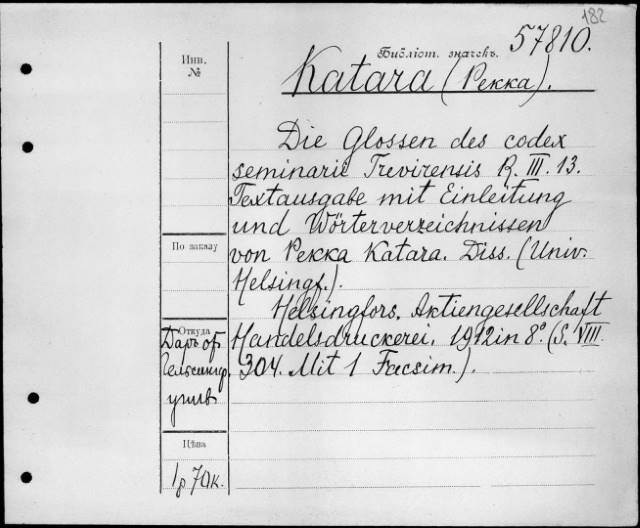 182
Библіот. значекъ. 57810.
Инв.
№
Katara (Pekka).
Die Glossen des codex
seminarii Trevirensis R. III. 13.
Textausgabe mit Einleitung
und Wörterverzeichnissen
По заказу
von Pekka Katara. Diss. (Univ.
Helsingf.).
Helsingfors. Aktiengesellschaft
Откуда
Handelsdruckerei. 1912 in 8º. (S. VIII.
Даръ от
304. Mit 1 Facsim.).
Гельсингф.
унив
Цѣна
1 р 70 к.